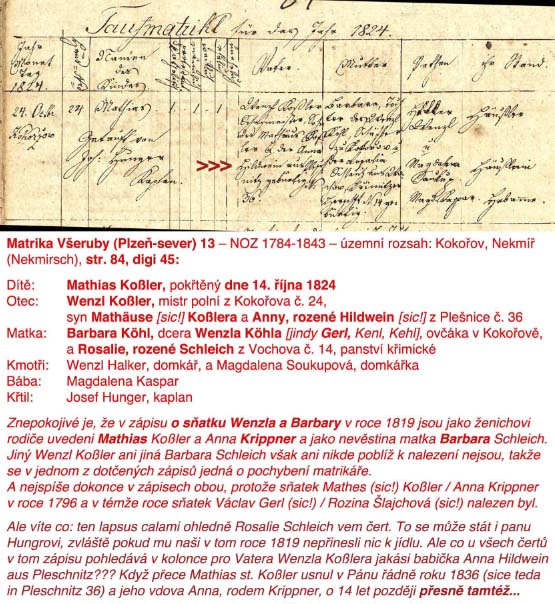 Taufmatukl für das Jahr 1824.
Jahr
Monat
Tag
1824
Namen
des
Kindes
Vater.
Mutter
Pathen
ihr Stand.
24. Octbr
24
Mathias
1
1
1
Getauft von
Jos: Hunger
Kaplan.
>>>
Wenzl Koßler
Barbara, Toch
des Mathäus Koß
ler & der Anna
36.
Wenzl
Häußler
Magdalena
Häußlerin
Magd. Kaspar.
Hebamme
Matrika Všeruby (Plzeň-sever) 13 – NOZ 1784-1843 – územní rozsah: Kokořov, Nekmíř
(Nekmirsch), str. 84, digi 45:
Dítě: Mathias Koßler, pokřtěný dne 14. října 1824
Otec: Wenzl Koßler, mistr polní z Kokořova č. 24,
syn Mathäuse [sic!] Koßlera a Anny, rozené Hildwein [sic!] z Plešnice č. 36
Matka: Barbara Köhl, dcera Wenzla Köhla [jindy Gerl, Kenl, Kehl], ovčáka v Kokořově,
a Rosalie, rozené Schleich z Vochova č. 14, panství křimické
Kmotři: Wenzl Halker, domkář, a Magdalena Soukupová, domkářka
Bába: Magdalena Kaspar
Křtil: Josef Hunger, kaplan
Znepokojivé je, že v zápisu o sňatku Wenzla a Barbary v roce 1819 jsou jako ženichovi
rodiče uvedeni Mathias Koßler a Anna Krippner a jako nevěstina matka Barbara Schleich.
Jiný Wenzl Koßler ani jiná Barbara Schleich však ani nikde poblíž k nalezení nejsou, takže
se v jednom z dotčených zápisů jedná o pochybení matrikáře.
A nejspíše dokonce v zápisech obou, protože sňatek Mathes (sic!) Koßler / Anna Krippner
v roce 1796 a v témže roce sňatek Václav Gerl (sic!) / Rozina Šlajchová (sic!) nalezen byl.
Ale víte co: ten lapsus calami ohledně Rosalie Schleich vem čert. To se může stát i panu
Hungrovi, zvláště pokud mu naši v tom roce 1819 nepřinesli nic k jídlu. Ale co u všech čertů
v tom zápisu pohledává v kolonce pro Vatera Wenzla Koßlera jakási babička Anna Hildwein
aus Pleschnitz??? Když přece Mathias st. Koßler usnul v Pánu řádně roku 1836 (sice teda
in Pleschnitz 36) a jeho vdova Anna, rodem Krippner, o 14 let později přesně tamtéž...